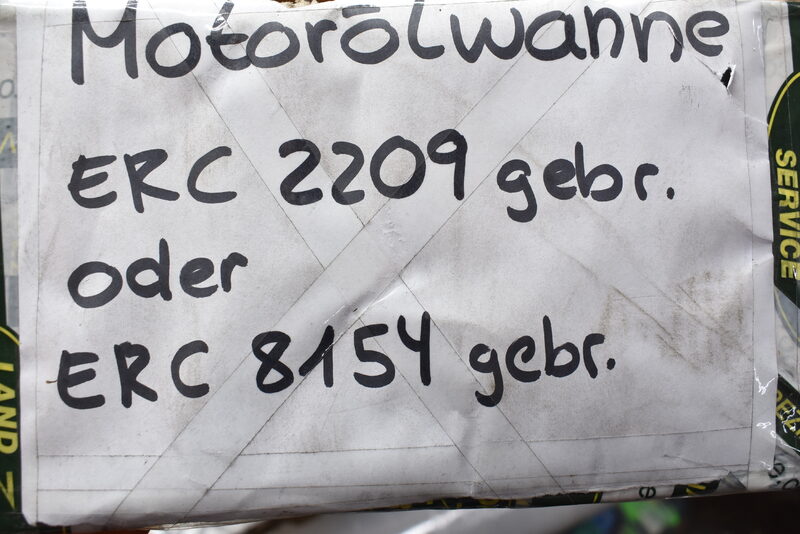 Motorölwanne
ERC 2209 gebr.
oder
ERC 8154 gebr.
SERVICE
LAND